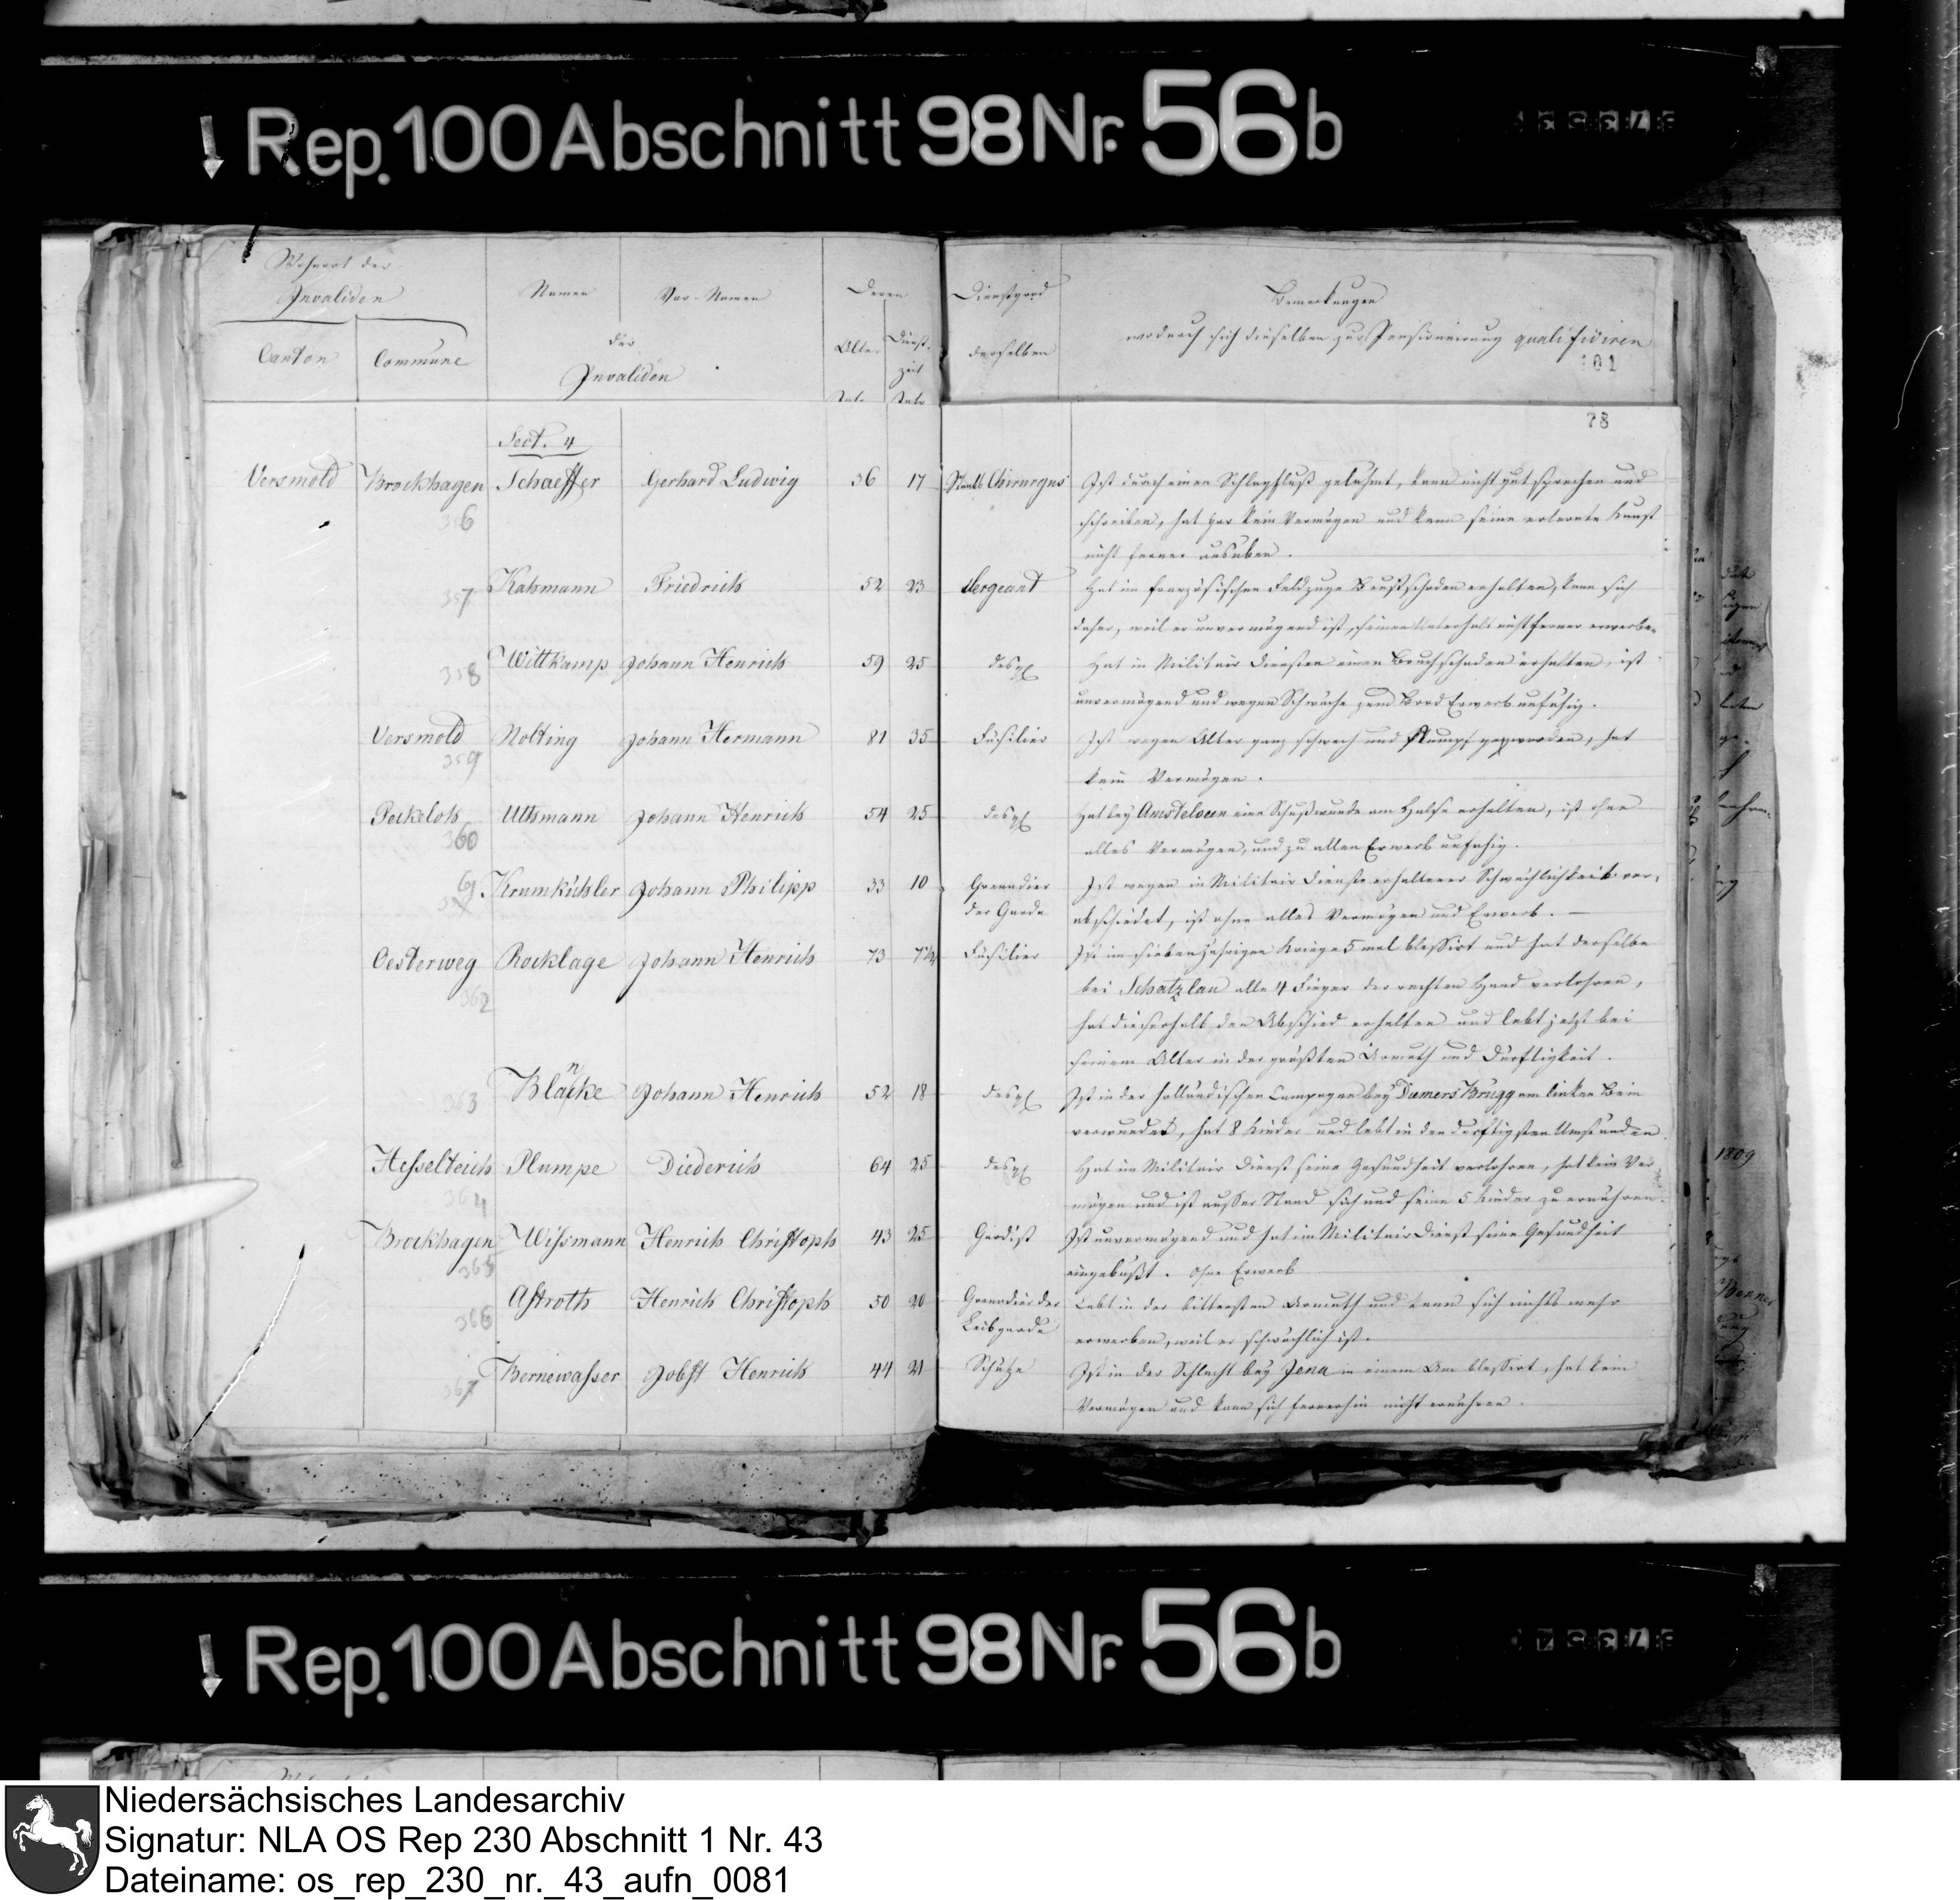 Rep. 100 Abschnitt 98 Nr. 56b
Wohnort der Invaliden Namen Vor-Namen Deren Dienstgrad Bemerkungen
Canton Commune der Invaliden Alter Dienst-zeit derselben wodurch sich dieselben zur Pensionirung qualificiren
101
78
Sect. 4
Versmold Brockhagen Schaeffer Gerhard Ludwig 36 17 Staabs Chirurgus Ist durch einen Schlagfluß gelähmt, kann nicht gut sprechen und
356 schreiben, hat gar kein Vermögen und kann seine erlernte Kunst
nicht ferner ausüben.
357 Kahmann Friedrich 52 23 Sergeant Hat im französischen Feldzuge Brustschaden erhalten, kann sich
daher, weil er unvermögend ist, seinen Unterhalt nicht ferner erwerben
358 Wittkamp Johann Henrich 59 25 desgl Hat in Militair Diensten einen Bruchschaden erhalten, ist
unvermögend und wegen Schwäche zum Brod Erwerb unfähig.
Versmold Nolting Johann Hermann 81 35 Füsilier Ist wegen Alter ganz schwach und stumpf geworden, hat
359 kein Vermögen.
Peckeloh Uthmann Johann Henrich 54 25 desgl Hat bey Amsteloeen eine Schußwunde am Halse erhalten, ist ohne
360 alles Vermögen, und zu allen Erwerb unfähig.
61 Krumkühler Johann Philipp 33 10 Grenadier der Garde Ist wegen in Militair Dienste erhaltener Schwächlichkeit ver-
abschiedet, ist ohne alles Vermögen und Erwerb. —
Oesterweg Rocklage Johann Henrich 73 7 1/2 Füsilier Ist im siebenjährigen Kriege 5 mal blessirt und hat derselbe
362 bei Schatzlau alle 4 Finger der rechten Hand verlohren,
hat dieserhalb den Abschied erhalten und lebt jetzt bei
seinem Alter in der größten Armuth und Dürftigkeit.
363 Blanke Johann Henrich 52 18 desgl Ist in der holländischen Campagne bey Damers Brügg am linken Bein
verwundet, hat 8 Kinder und lebt in den dürftigsten Umständen.
Hesselteich Plumpe Diederich 64 25 desgl Hat im Militair Dienst seine Gesundheit verlohren, hat kein Ver-
364 mögen und ist ausser Stand sich und seine 5 Kinder zu ernähren.
Brockhagen Wissmann Henrich Christoph 43 25 Gardist Ist unvermögend und hat im Militair Dienst seine Gesundheit
365 eingebüßt. ohne Erwerb
366 Astroth Henrich Christoph 50 20 Grenadier der Leibgarde Lebt in der bittersten Armuth und kann sich nichts mehr
erwerben, weil er schwächlich ist.
367 Bernewasser Jobst Henrich 44 21 Schütze Ist in der Schlacht bey Jena in einem Arm blessirt, hat kein
Vermögen und kann sich fernerhin nicht ernähren.
1809
Rep. 100 Abschnitt 98 Nr. 56b
Niedersächsisches Landesarchiv
Signatur: NLA OS Rep 230 Abschnitt 1 Nr. 43
Dateiname: os_rep_230_nr._43_aufn_0081